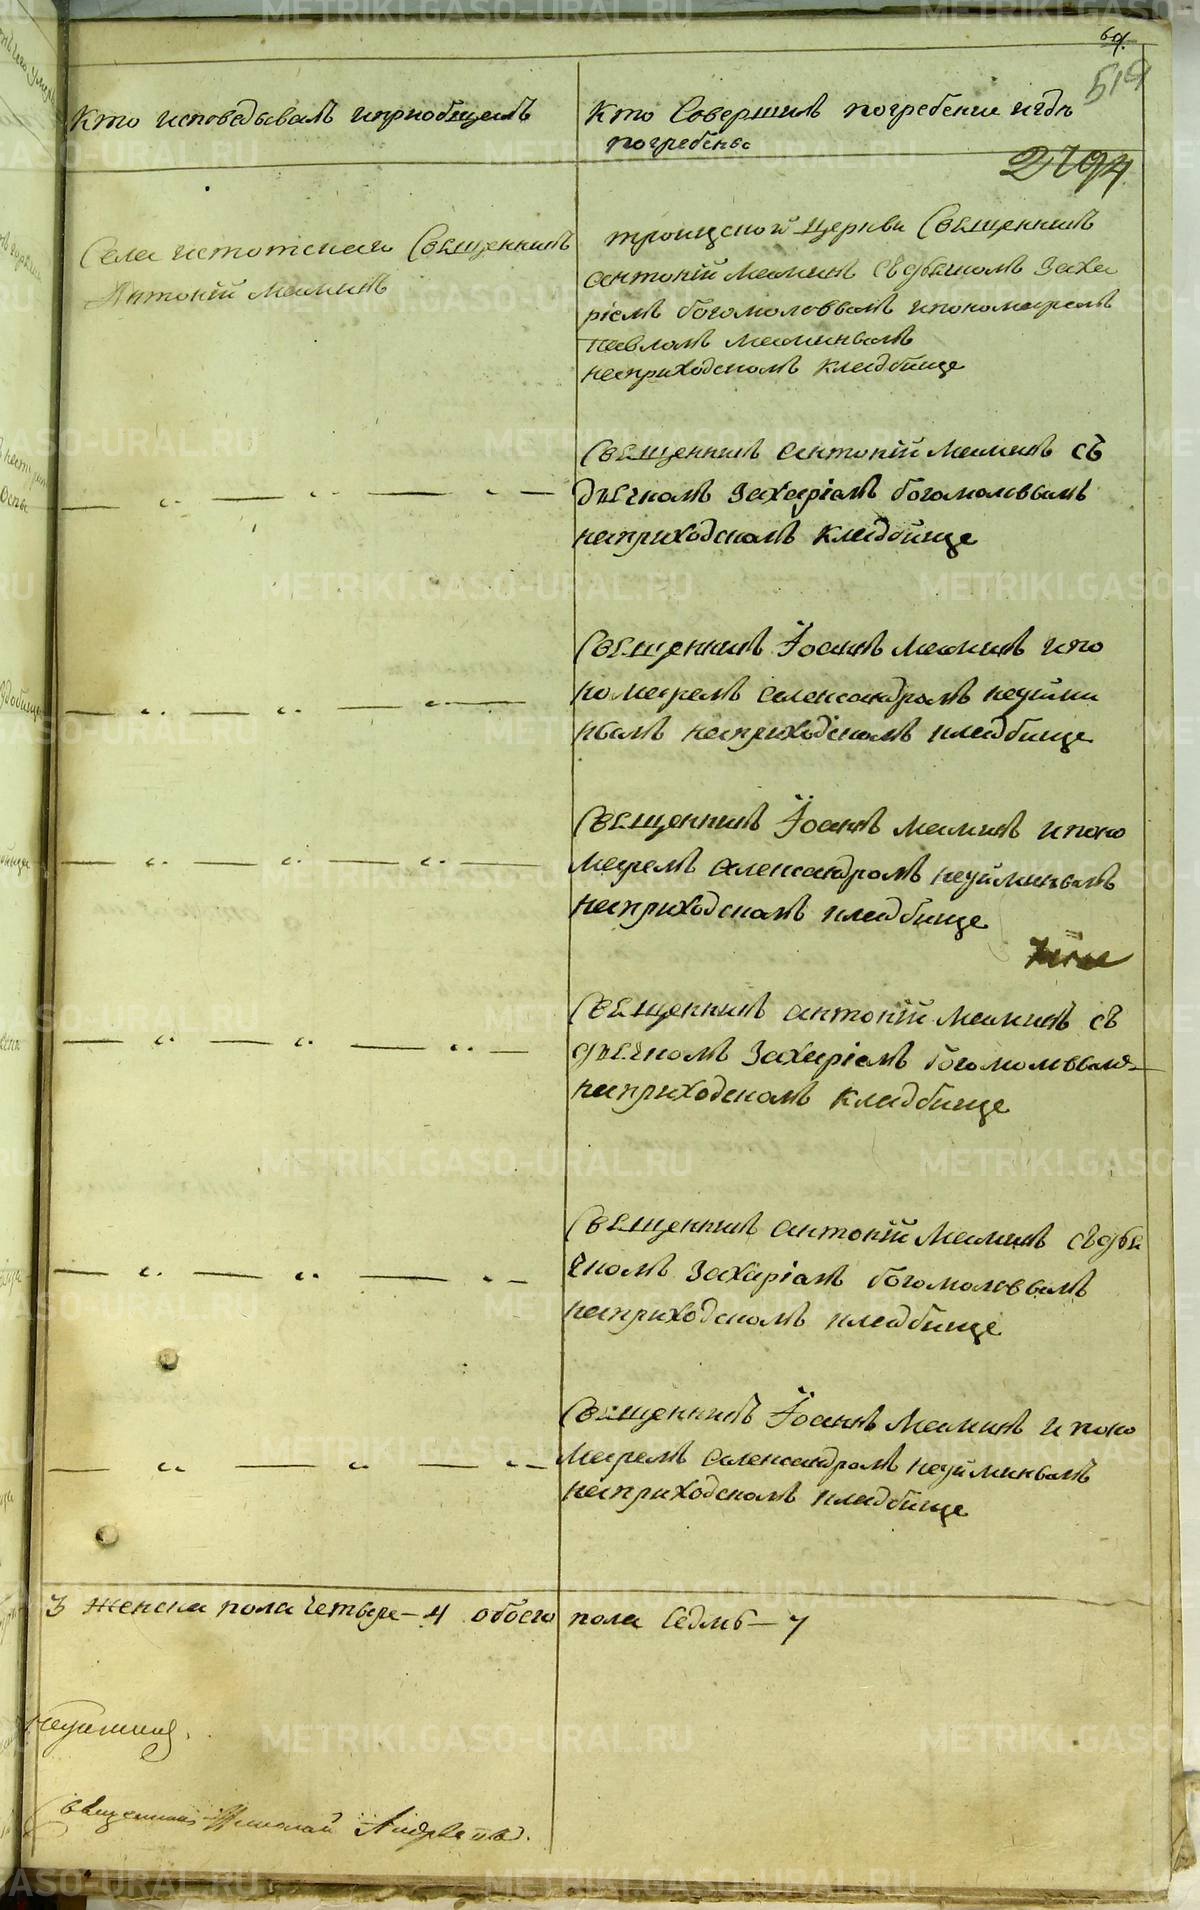 69.
519
Кто исповедывалъ иприобщалъ
Кто Совершилъ погребение игдѣ
погребены
2794
Села истотскаго Священникъ
Антоній Маминъ
троицской Церкви Священникъ
антоній Маминъ съ дьячкомъ Заха
ріемъ богомоловвымъ ипономаремъ
павломъ Маминвымъ
наприходскомъ кладбище
Священникъ антоній Маминъ съ
дьячкомъ Захаріемъ богомоловвымъ
наприходскомъ кладбище
Священникъ Іоаннъ Маминъ ипо
номаремъ александромъ неуйми
нвымъ наприходскомъ кладбище
Священникъ Іоаннъ Маминъ ипоно
маремъ александромъ неуйминвымъ
наприходскомъ кладбище
Священникъ антоній Маминъ съ
дьячкомъ Захаріемъ богомоловвымъ
наприходскомъ кладбище
Священникъ антоній Маминъ съ дья
чкомъ Захаріемъ богомоловвымъ
наприходскомъ кладбище
Священникъ Іоаннъ Маминъ ипоно
маремъ александромъ неуйминвымъ
наприходскомъ кладбище
3 женска пола четыре – 4 обоего пола Седмь – 7
неуйминъ.
Священникъ Николай Андреевъ.